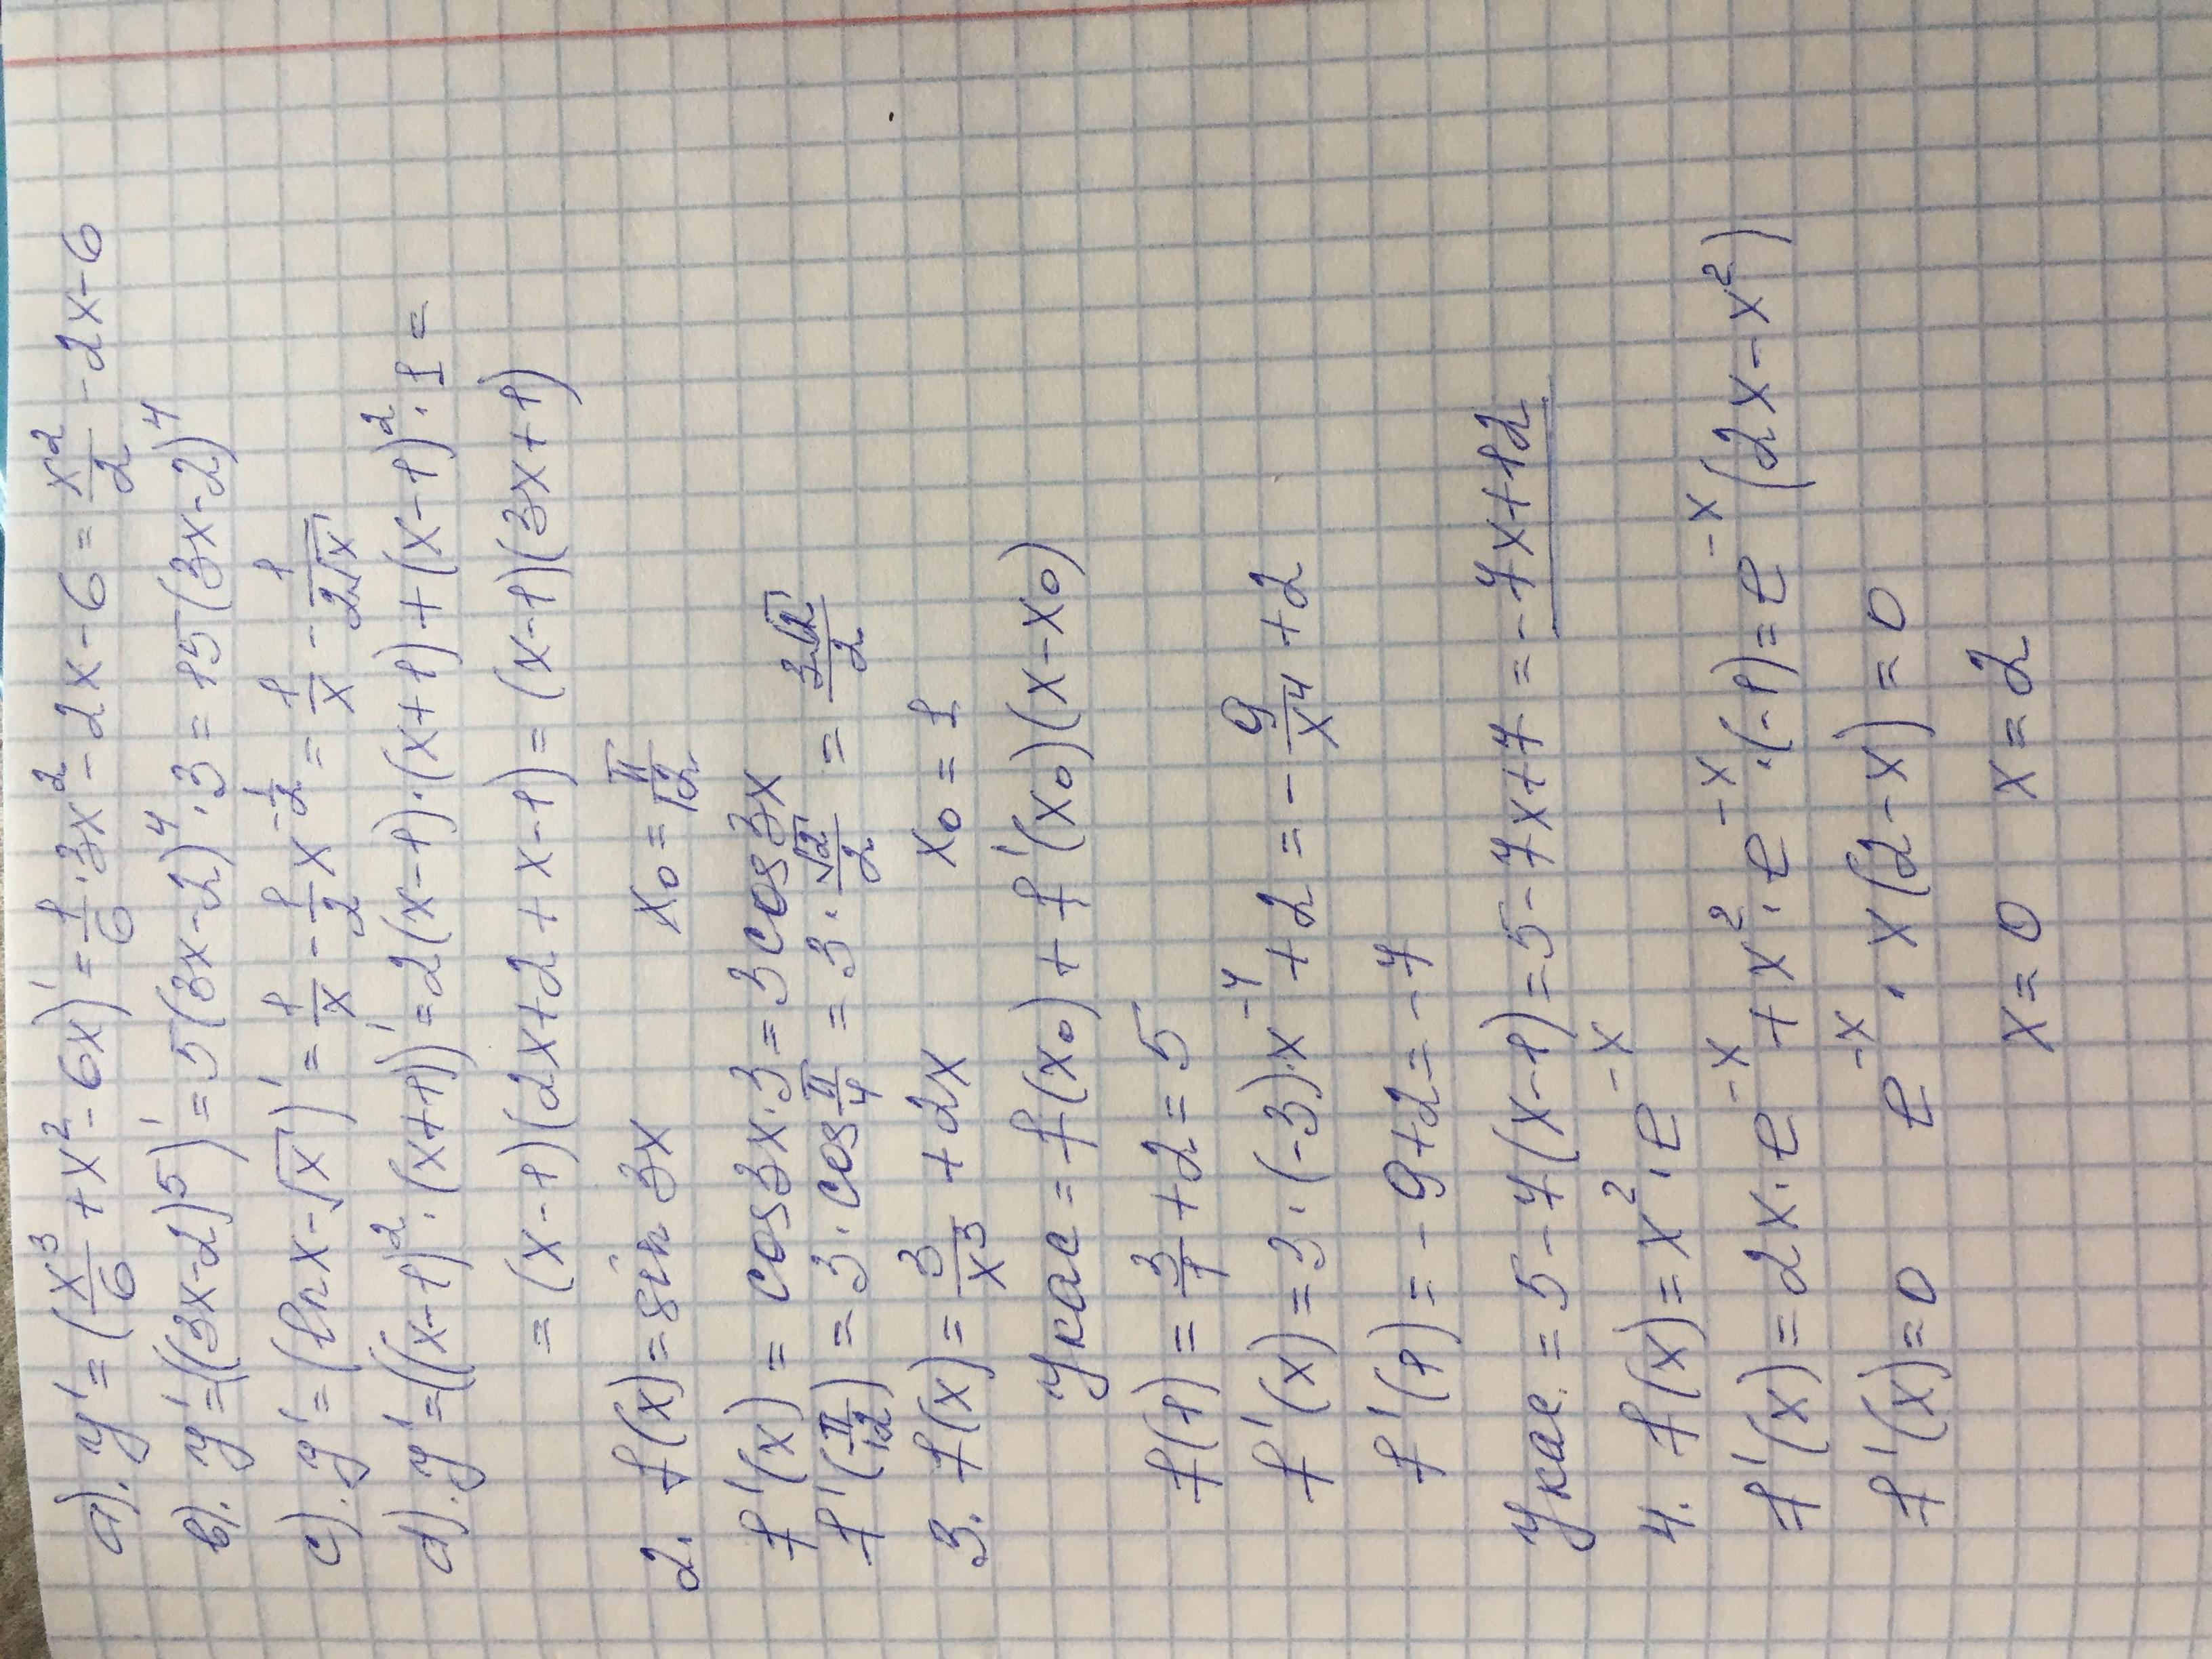 a). y' = (x³/6 + x² - 6x)' = 1/6 · 3x² - 2x - 6 = x²/2 - 2x - 6
b). y' = ((3x-2)⁵)' = 5(3x-2)⁴ · 3 = 15(3x-2)⁴
c). y' = (ln x - √x)' = 1/x - 1/2 x^(-1/2) = 1/x - 1/(2√x)
d). y' = ((x-1)² · (x+1))' = 2(x-1) · (x+1) + (x-1)² · 1 =
= (x-1)(2x+2+x-1) = (x-1)(3x+1)
2. f(x) = sin 3x x₀ = π/12
f'(x) = cos 3x · 3 = 3 cos 3x
f'(π/12) = 3 · cos π/4 = 3 · √2/2 = 3√2/2
3. f(x) = 3/x³ + 2x x₀ = 1
y кас = f(x₀) + f'(x₀)(x-x₀)
f(1) = 3/1 + 2 = 5
f'(x) = 3 · (-3) · x⁻⁴ + 2 = - 9/x⁴ + 2
f'(1) = -9+2 = -7
y кас. = 5 - 7(x-1) = 5 - 7x + 7 = -7x + 12
4. f(x) = x² · e⁻ˣ
f'(x) = 2x · e⁻ˣ + x² · e⁻ˣ · (-1) = e⁻ˣ (2x - x²)
f'(x) = 0 e⁻ˣ · x(2-x) = 0
x = 0 x = 2